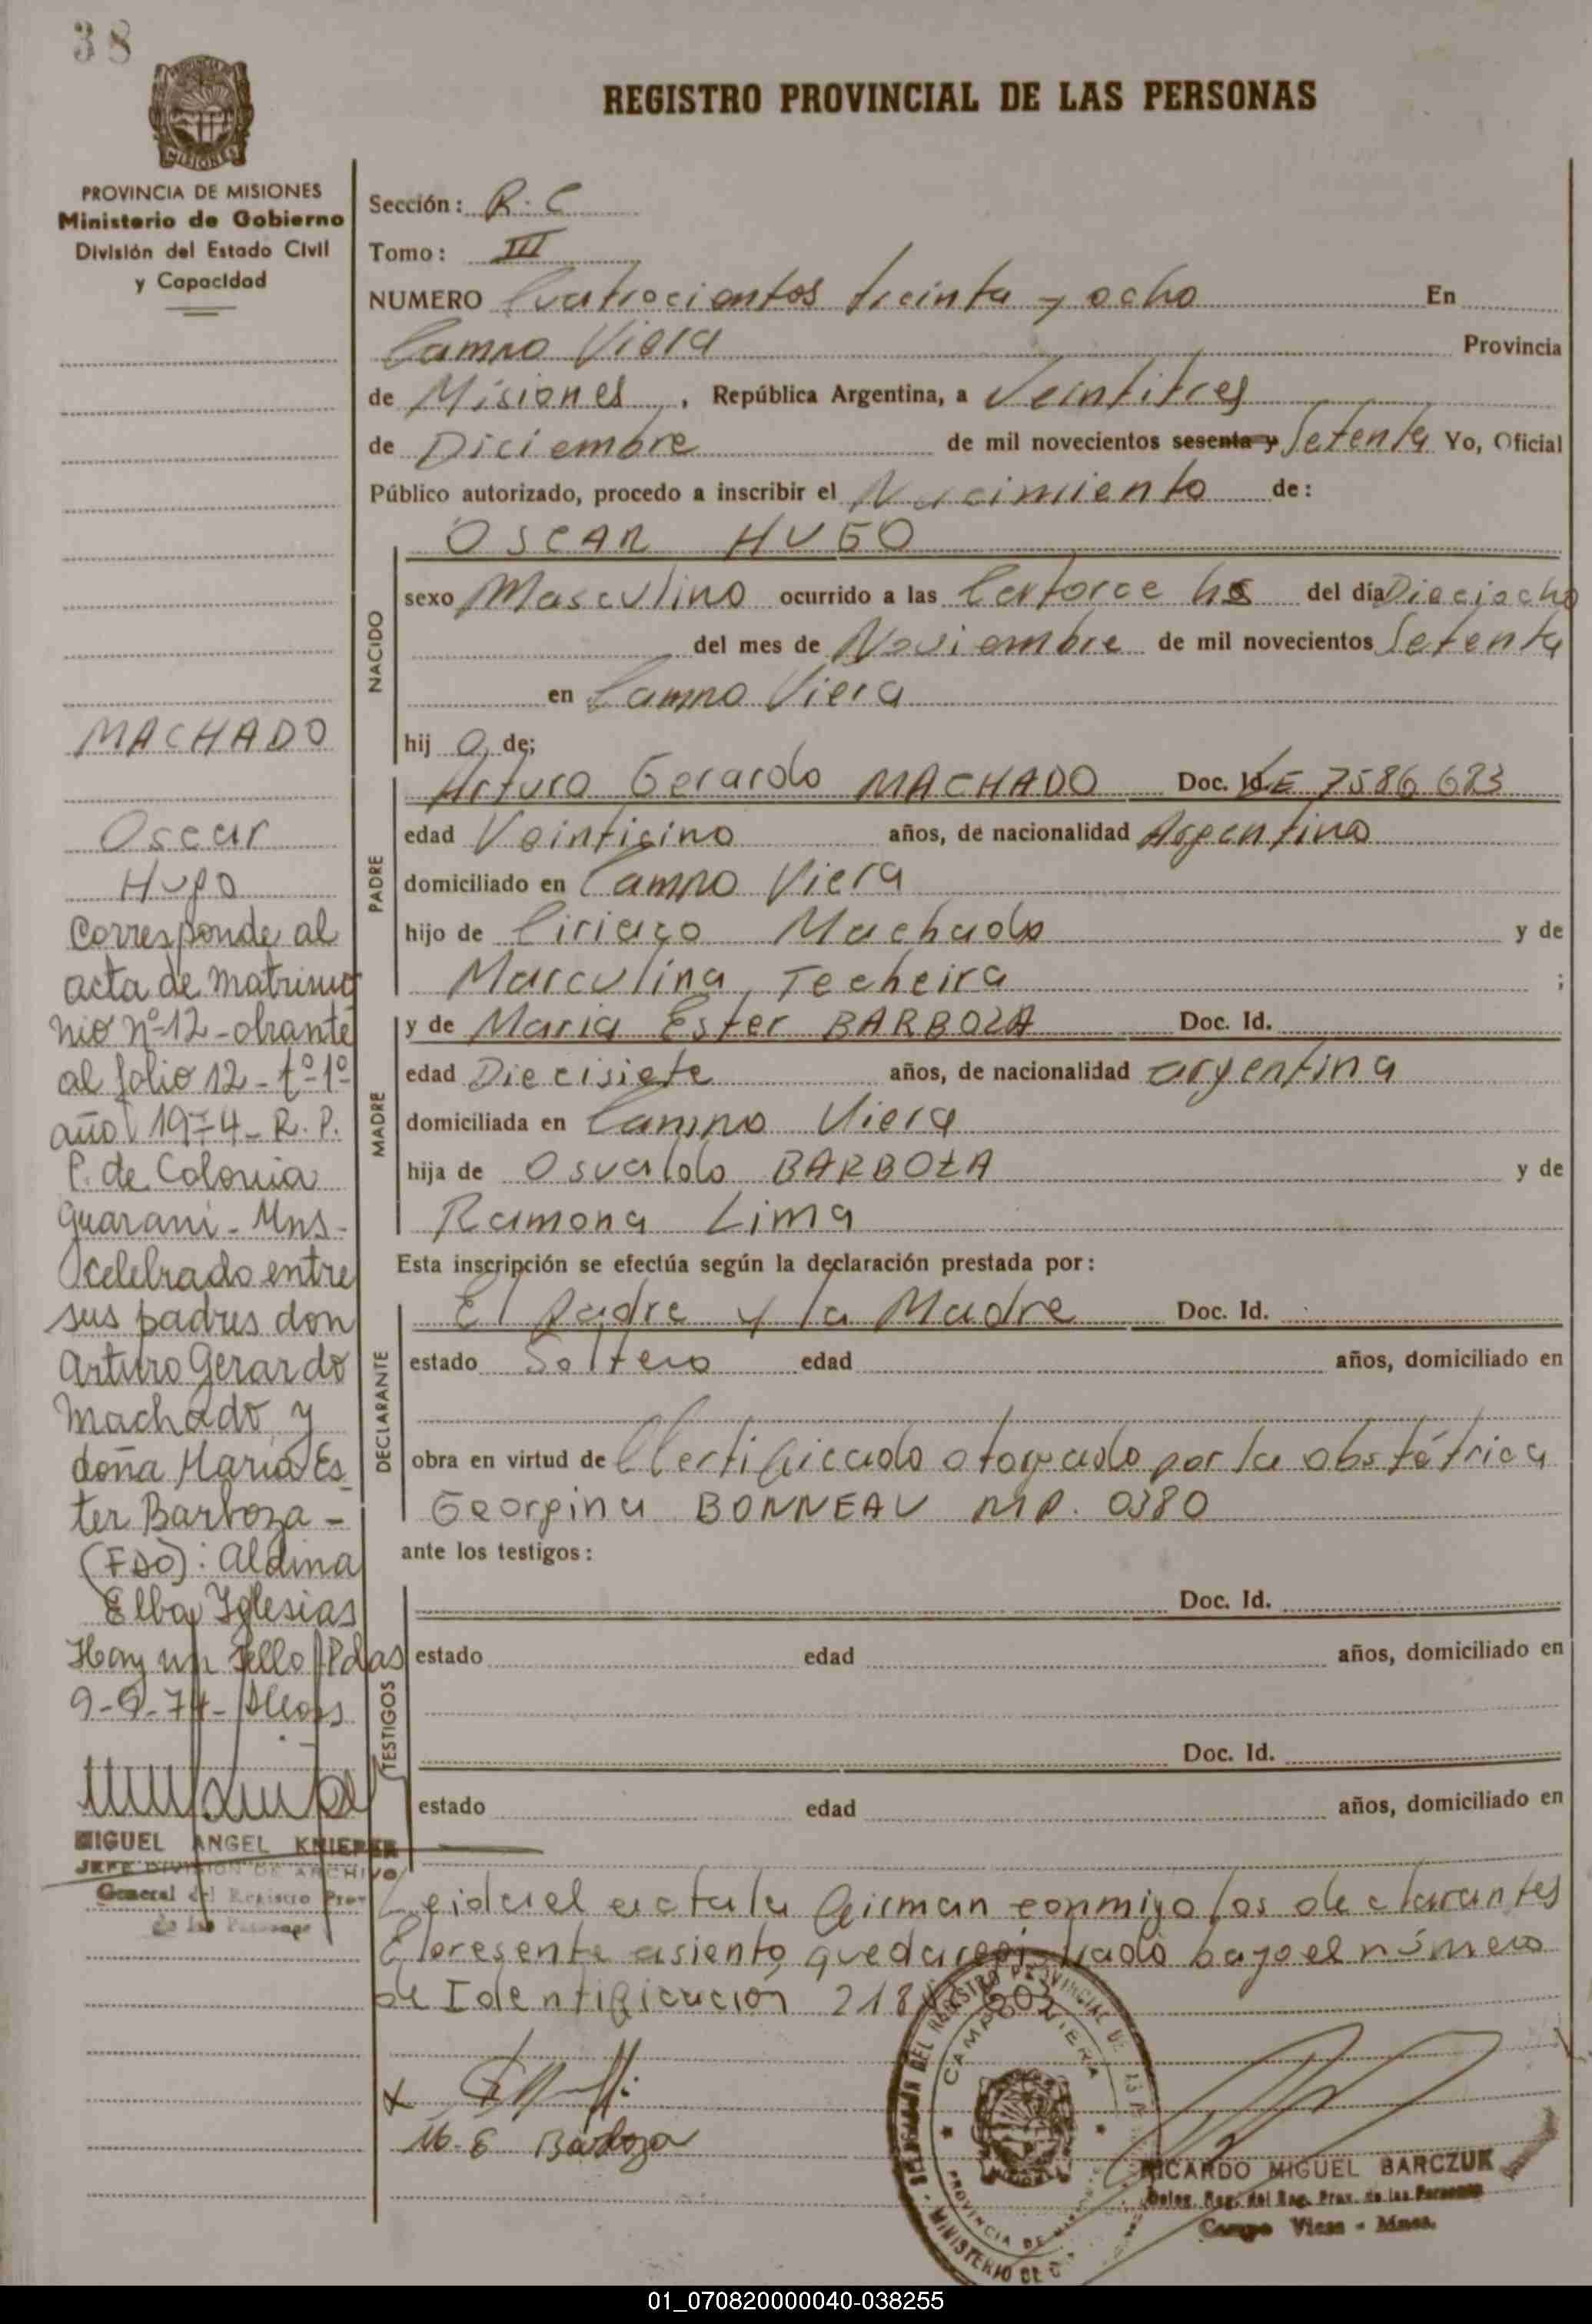 38
REGISTRO PROVINCIAL DE LAS PERSONAS
MISIONES
PROVINCIA DE MISIONES
Ministerio de Gobierno
División del Estado Civil
y Capacidad
MACHADO
Oscar
Hugo
Corresponde al
acta de matrimo
nio nº 12 - obrante
al folio 12 - tº 1º
año 1974 - R. P.
P. de Colonia
Guaraní - Mns -
celebrado entre
sus padres don
Arturo Gerardo
Machado y
doña María Es
ter Barboza -
(FDO): Aldina
Elba Iglesias
Hay un sello Pdas
9-9-74-
MIGUEL ANGEL KNIEPER
JEFE DIVISION DE ARCHIVO
General del Registro Prov
de las Personas
Sección: R. C
Tomo: III
NUMERO Cuatrocientos treinta y ocho En
Campo Viera Provincia
de Misiones, República Argentina, a Veintitres
de Diciembre de mil novecientos sesenta y Setenta Yo, Oficial
Público autorizado, procedo a inscribir el Nacimiento de:
OSCAR HUGO
NACIDO
sexo Masculino ocurrido a las Catorce hs del día Dieciocho
del mes de Noviembre de mil novecientos Setenta
en Campo Viera
hij o de;
PADRE
Arturo Gerardo MACHADO Doc. Id. LE 7586683
edad Veinticino años, de nacionalidad Argentino
domiciliado en Campo Viera
hijo de Ciriaco Machado y de
Marculina Techeira ;
MADRE
y de Maria Ester BARBOZA Doc. Id.
edad Diecisiete años, de nacionalidad argentina
domiciliada en Campo Viera
hija de Osvaldo BARBOZA y de
Ramona Lima
Esta inscripción se efectúa según la declaración prestada por:
DECLARANTE
El Padre y la Madre Doc. Id.
estado Soltero edad años, domiciliado en
obra en virtud de Certificado otorgado por la obstétrica
Georgina BONNEAU MP. 0380
ante los testigos:
TESTIGOS
Doc. Id.
estado edad años, domiciliado en
Doc. Id.
estado edad años, domiciliado en
Leida el acta la firman conmigo los declarantes
El presente asiento queda registrado bajo el número
de Identificación 218
x
M. E Barboza
DELEGACION DEL REGISTRO PROVINCIAL DE
CAMPO VIERA
PROVINCIA DE
MINISTERIO DE
RICARDO MIGUEL BARCZUK
Deleg. Reg. del Reg. Prov. de las Personas
Campo Viera - Mnes.
01_070820000040-038255